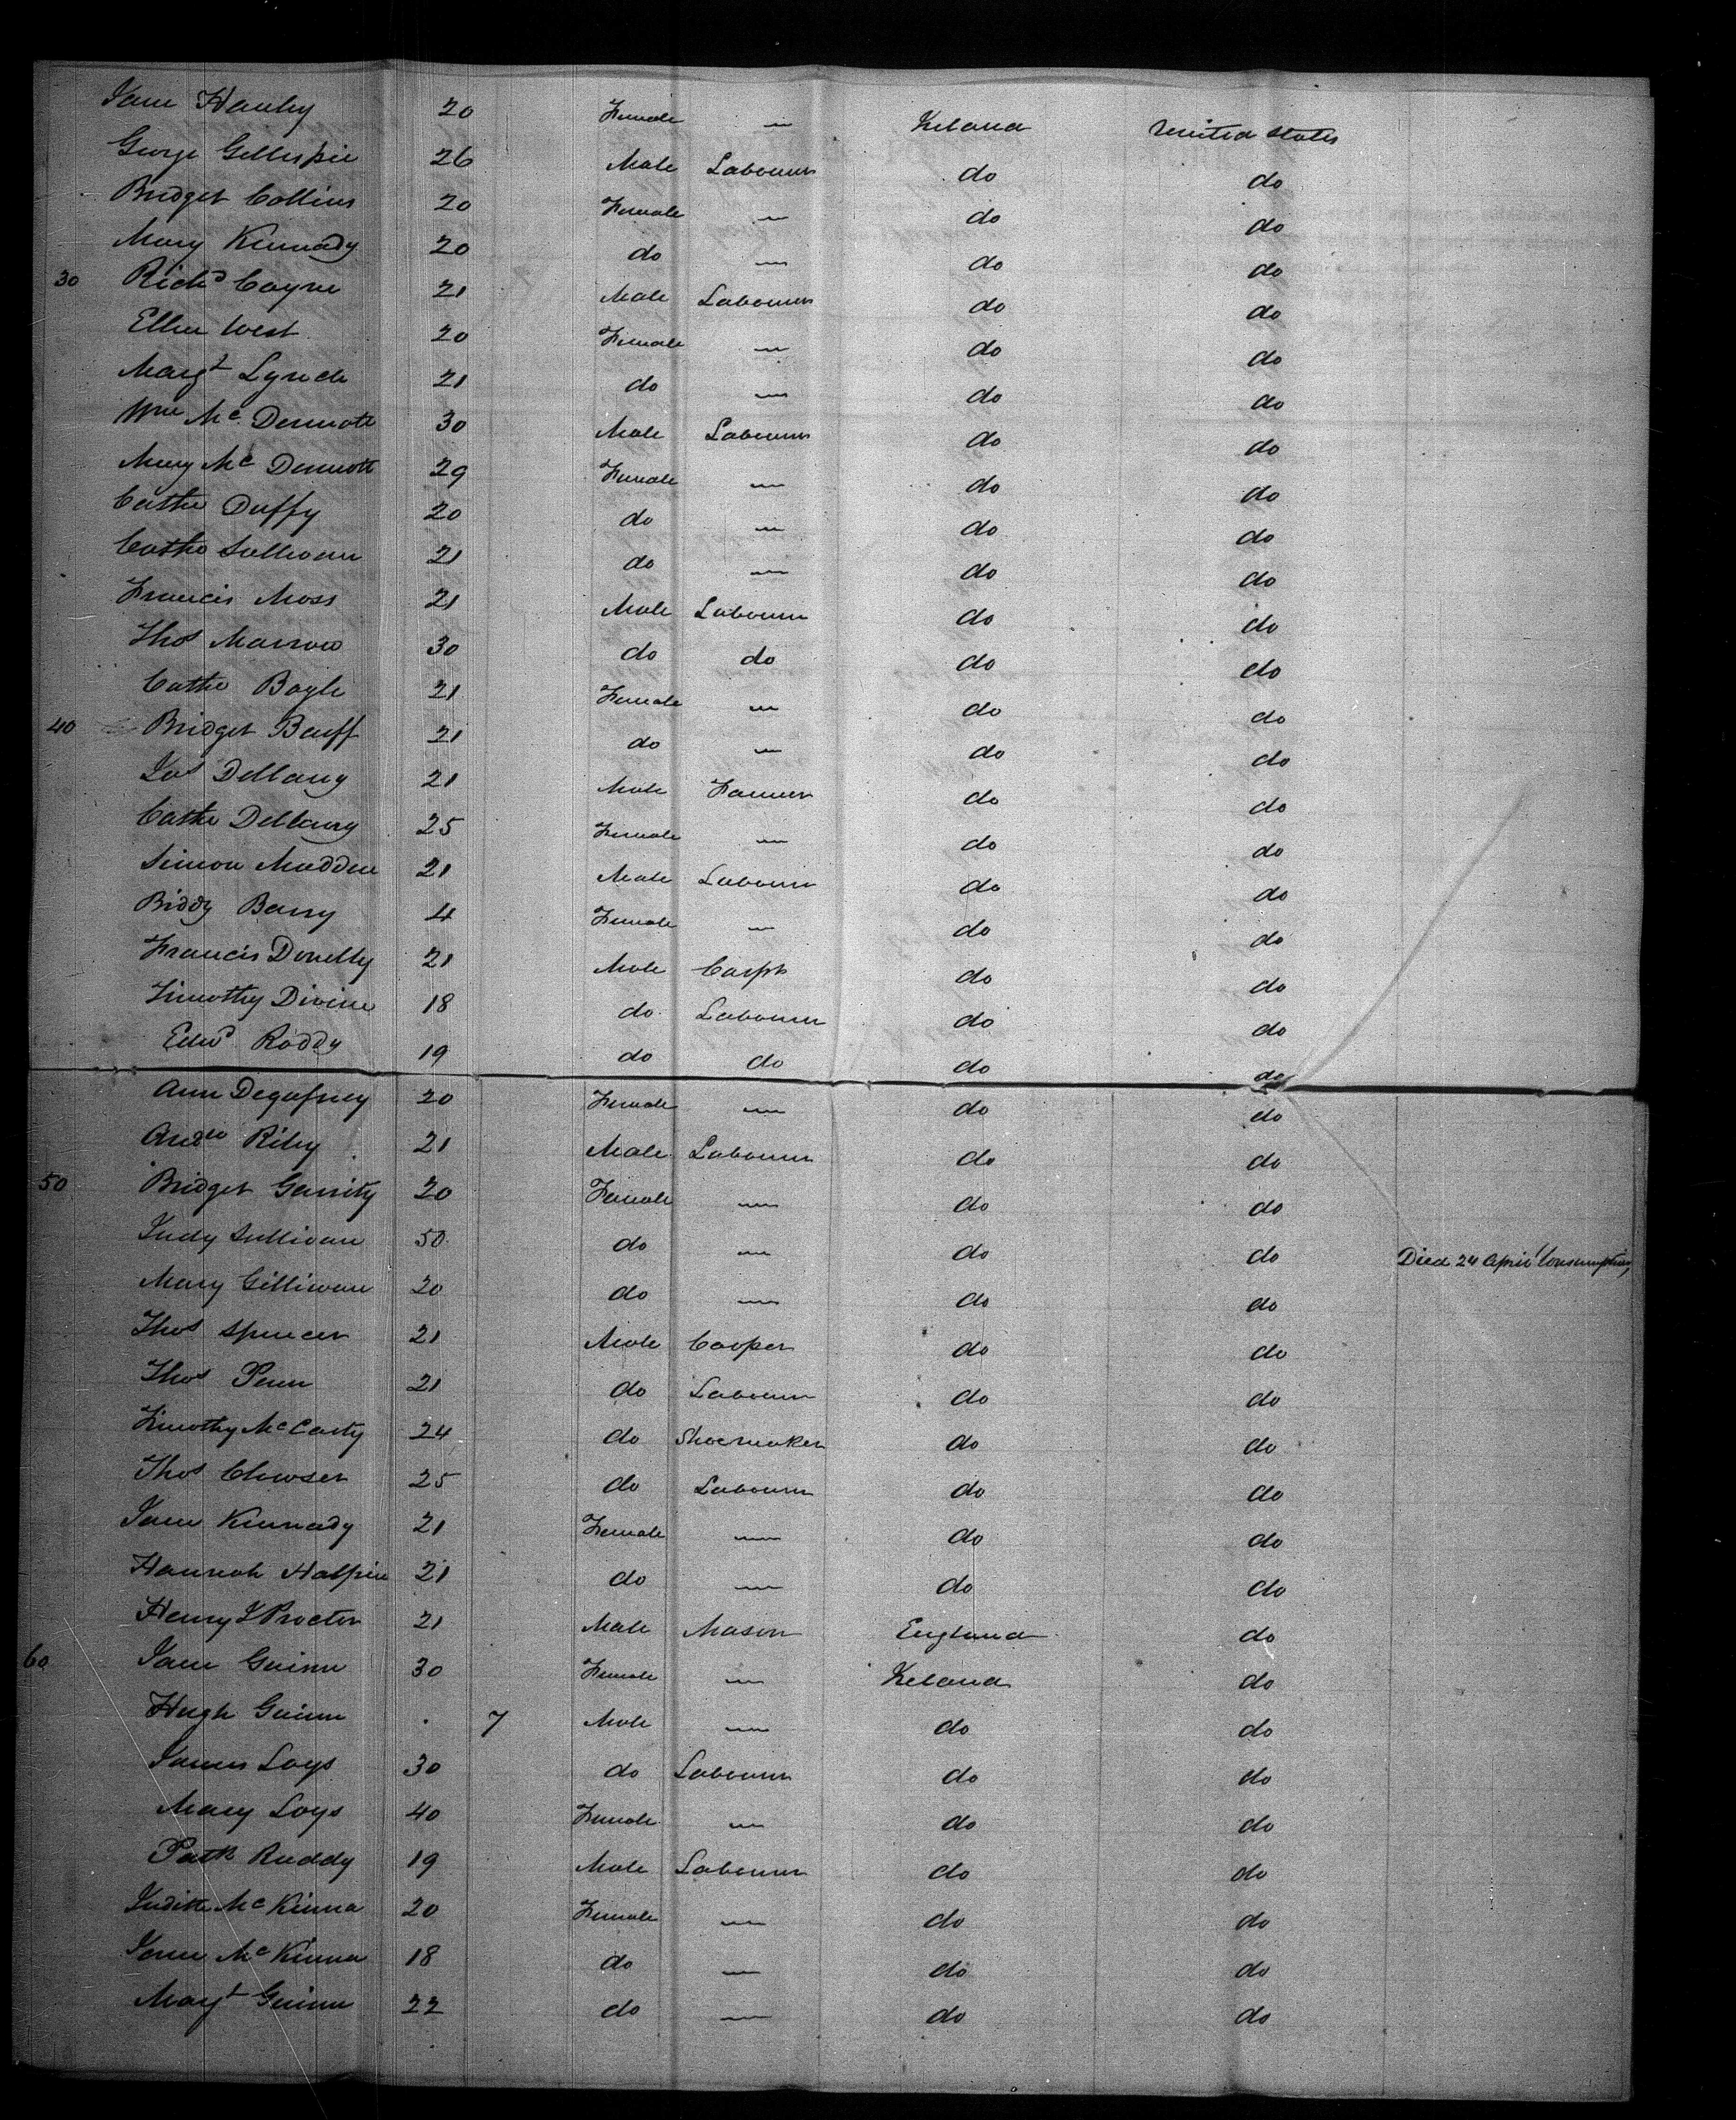 Jane Hanley 20 Female — Ireland United States
George Gillespie 26 Male Labourer do do
Bridget Collins 20 Female — do do
Mary Kennady 20 do — do do
30 Richd Coyne 21 Male Labourer do do
Ellen West 20 Female — do do
Margt Lynch 21 do — do do
Wm Mc Dermott 30 Male Labourer do do
Mary Mc Dermott 29 Female — do do
Cathe Duffy 20 do — do do
Cathe Sullivan 21 do — do do
Francis Moss 21 Male Labourer do do
Thos Marrow 30 do do do do
Cathe Boyle 21 Female — do do
40 Bridget Banff 21 do — do do
Jas Dellany 21 Male Farmer do do
Cathe Dellany 25 Female — do do
Simon Madden 21 Male Labourer do do
Biddy Barry 4 Female — do do
Francis Donelly 21 Male Carptr do do
Timothy Divine 18 do Labourer do do
Edwd Roddy 19 do do do do
Ann Degafney 20 Female — do do
Andw Riley 21 Male Labourer do do
50 Bridget Garrity 20 Female — do do
Judy Sullivan 50 do — do do Died 24 April Consumption
Mary Gilliwan 20 do — do do
Thos Spencer 21 Male Cooper do do
Thos Penn 21 do Labourer do do
Timothy Mc Carty 24 do Shoemaker do do
Thos Clowser 25 do Labourer do do
Jane Kennady 21 Female — do do
Hannah Halpin 21 do — do do
Henry J Procter 21 Male Mason England do
60 Jane Guinn 30 Female — Ireland do
Hugh Guinn 7 Male — do do
James Loys 30 do Labourer do do
Mary Loys 40 Female — do do
Patk Ruddy 19 Male Labourer do do
Judith Mc Kinna 20 Female — do do
Jane Mc Kinna 18 do — do do
Margt Guinn 22 do — do do